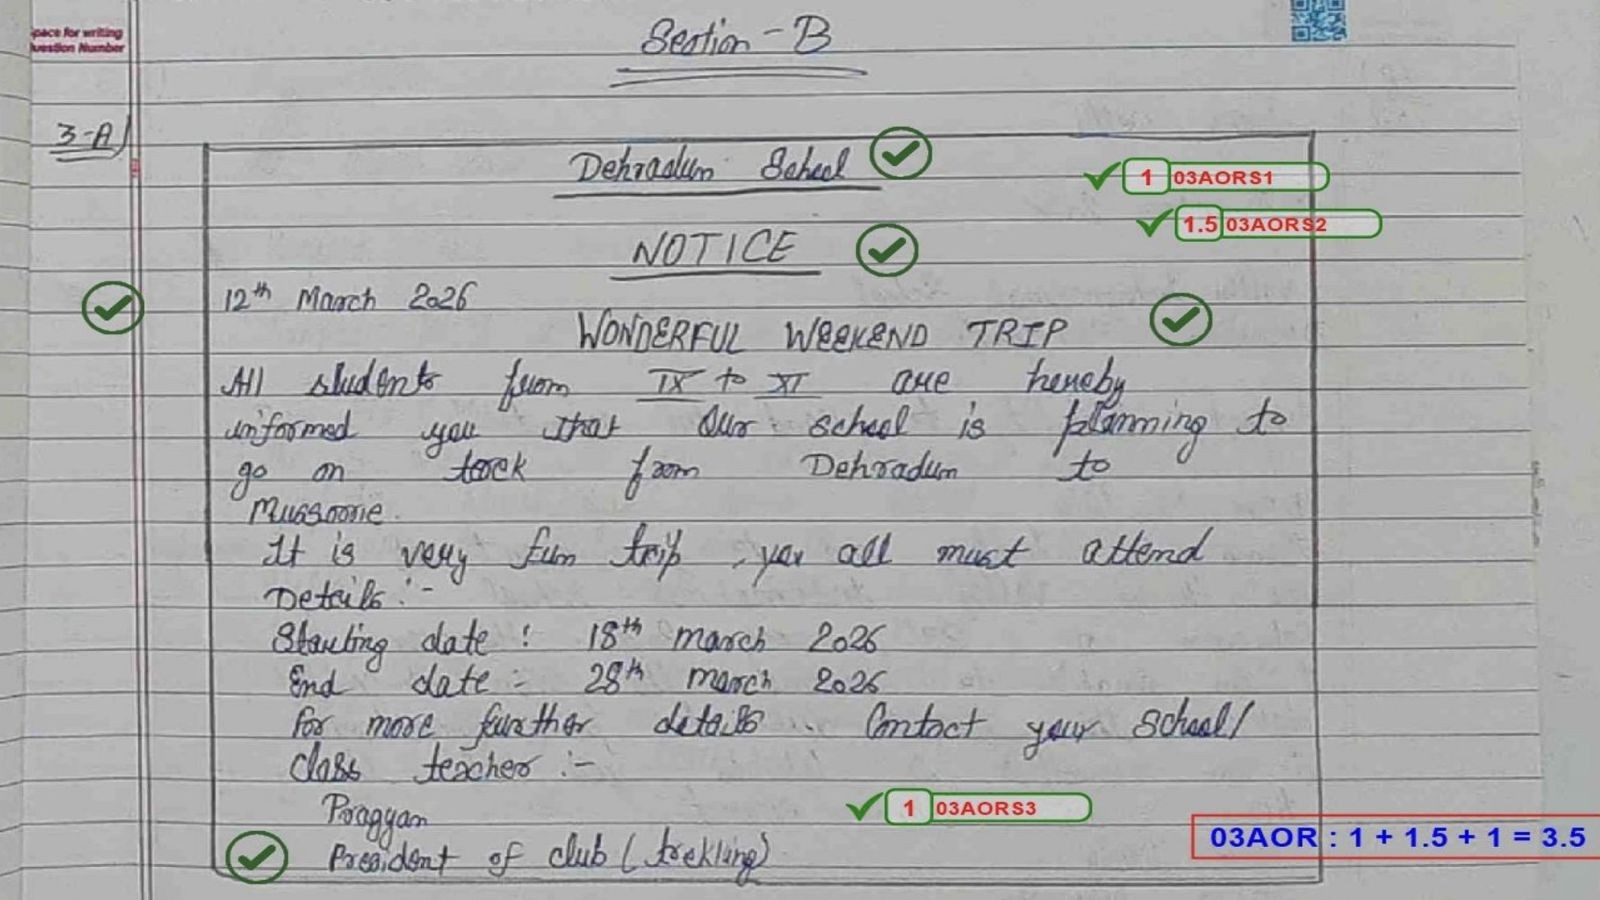 Space for writing
Question Number
Section - B
3-A
Dehradun School
1 03AORS1
1.5 03AORS2
NOTICE
12th March 2026
WONDERFUL WEEKEND TRIP
All students from IX to XI are hereby
informed you that Our school is planning to
go on treck from Dehradun to
Mussoorie.
It is very fun trip, you all must attend
Details :-
Starting date : 18th march 2026
End date :- 28th march 2026
for more further details . Contact your School/
class teacher :-
Pragyan
1 03AORS3
President of club (trekking)
03AOR : 1 + 1.5 + 1 = 3.5